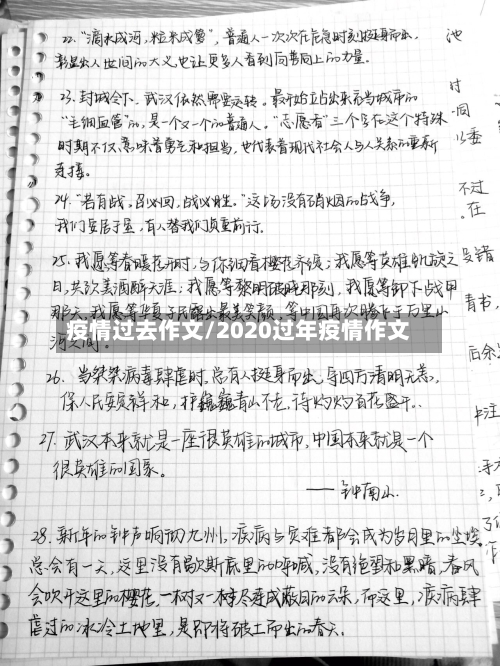 22. "滴水成河,粒米成箩",普通人一次次在危急时刻挺身而出,
彰显出人世间的大义,也让更多人看到同普同上的力量。
23. 封城令下,武汉依然需要运转。最开始站出来充当城市的
"毛细血管"的,是一个又一个的普通人。"志愿者"三个字在这个特殊
时期不仅意味着勇气和担当,也代表着现代社会人与人关系的重新
连接。
24. "若有战,召必回,战必胜。"这场没有硝烟的战争,
我们安居于室,有人替我们负重前行。
25. 我愿等春暖花开时,与你细看樱花齐绽;我愿等英雄凯旋之
日,共饮美酒醉天涯;我愿等黎明破晓那刻,我愿等卸下战甲
那天,我愿等华夏子民露出最美笑颜,等中国再次腾飞于万里山
河之间。
疫情过去作文/2020过年疫情作文
26. 当桀桀病毒肆虐时,总有人挺身而出,导四方清明无恙,
保人民安宾祥和,护巍巍青山不老,待灼灼百花盛开。
27. 武汉本来就是一座很英雄的城市,中国本来就是一个
很英雄的国家。
——钟南山
28. 新年的钟声响彻九州,疾病与灾难都会成为岁月里的尘埃
总会有一天,这里没有歇斯底里的呼喊,没有绝望和黑暗,春风
会吹开这里的樱花,一树又一树尽连成蔽日的云朵,而这里,疾病肆
虐过的冰冷土地里,是即将破土而出的春天。
池
时
同
以委
不过
在
没错
青书,
后余